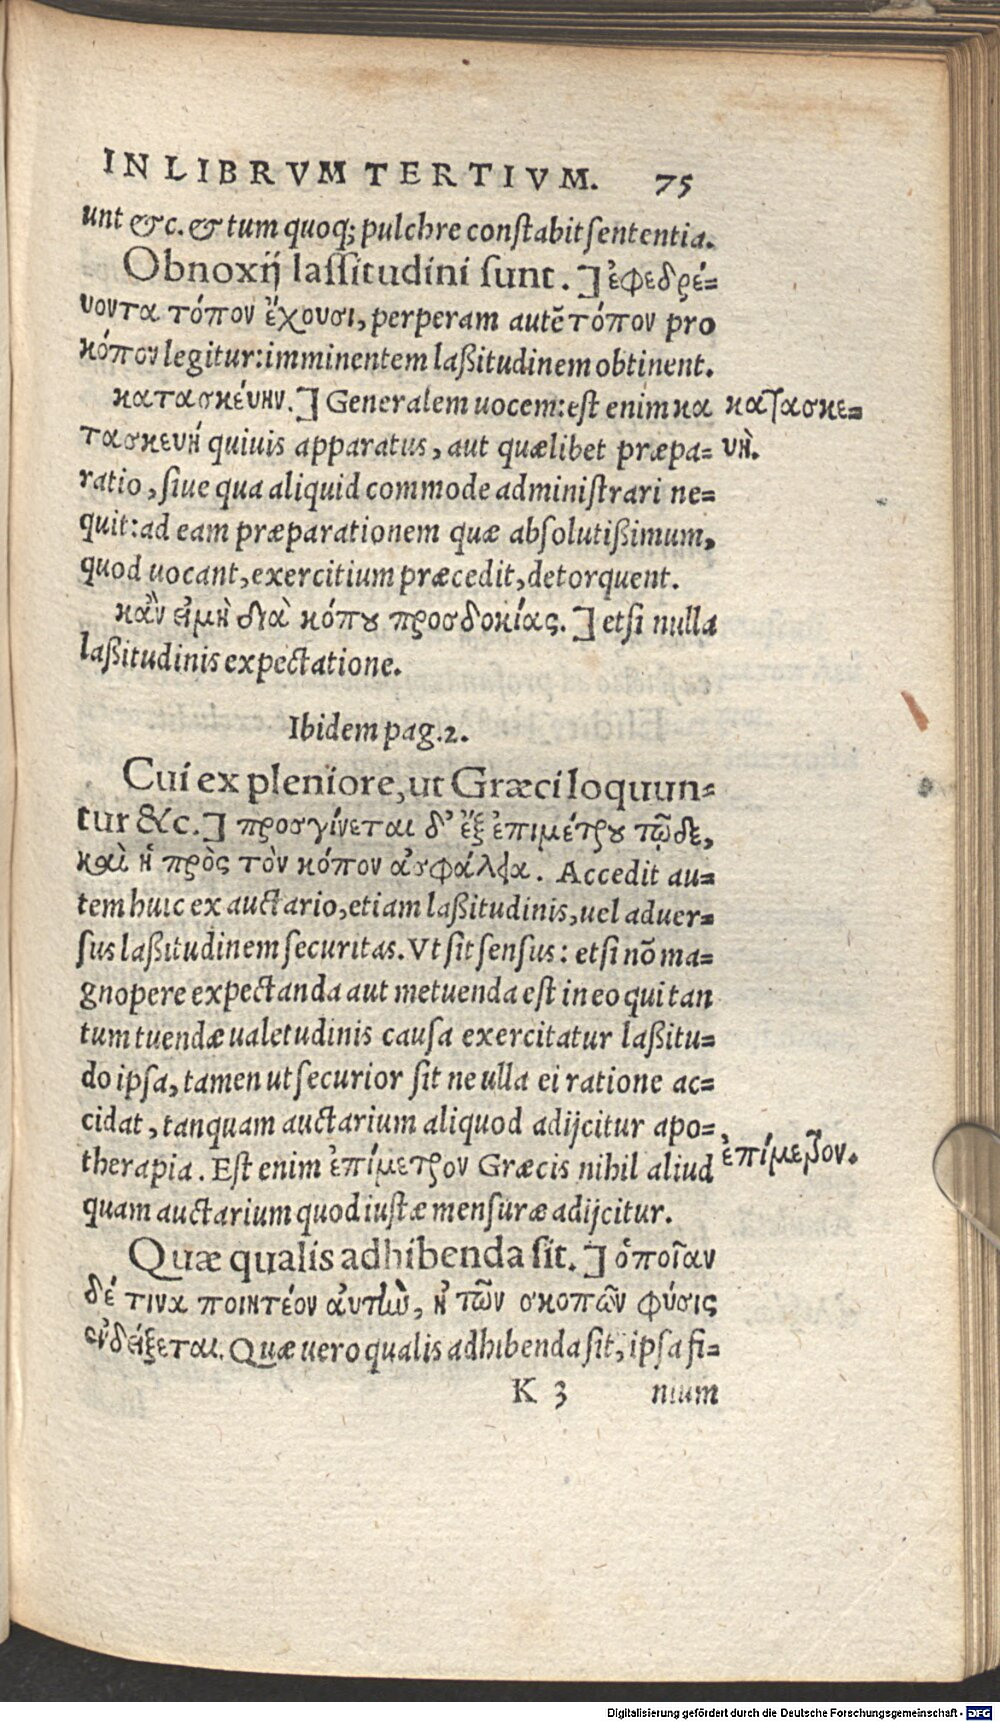 IN LIBRVM TERTIVM. 75
unt &c. & tum quoq; pulchre constabit sententia.
Obnoxij lassitudini sunt.] ἐφεδρέ=
υοντα τόπον ἔχουσι, perperam autē τόπον pro
κόπον legitur: imminentem laßitudinem obtinent.
κατασκέυην.] Generalem uocem: est enim κα
κατασκε=
τασκευή quiuis apparatus, aut quælibet præpa=
υὴ.
ratio, siue qua aliquid commode administrari ne=
quit: ad eam præparationem quæ absolutißimum,
quod uocant, exercitium præcedit, detorquent.
κἂν εἰ μὴ διὰ κόπου προσδοκίας.] etsi nulla
laßitudinis expectatione.
Ibidem pag.2.
Cui ex pleniore, ut Græci loquun=
tur &c.] προσγίνεται δ' ἐξ ἐπιμέτρου τῷδε,
καὶ ἡ πρὸς τὸν κόπον ἀσφάλεια. Accedit au=
tem huic ex auctario, etiam laßitudinis, uel aduer=
sus laßitudinem securitas. Vt sit sensus: etsi nō ma=
gnopere expectanda aut metuenda est in eo qui tan
tum tuendæ ualetudinis causa exercitatur laßitu=
do ipsa, tamen ut securior sit ne ulla ei ratione ac=
cidat, tanquam auctarium aliquod adijcitur apo=
therapia. Est enim ἐπίμετρον Græcis nihil aliud
ἐπίμετρον.
quam auctarium quod iustæ mensuræ adijcitur.
Quæ qualis adhibenda sit.] ὁποῖαν
δέ τινα ποιητέον ἀυτὴν, ἡ τῶν σκοπῶν φύσις
ἐνδείξεται. Quæ uero qualis adhibenda sit, ipsa fi=
K 3 nium
Digitalisierung gefördert durch die Deutsche Forschungsgemeinschaft - DFG